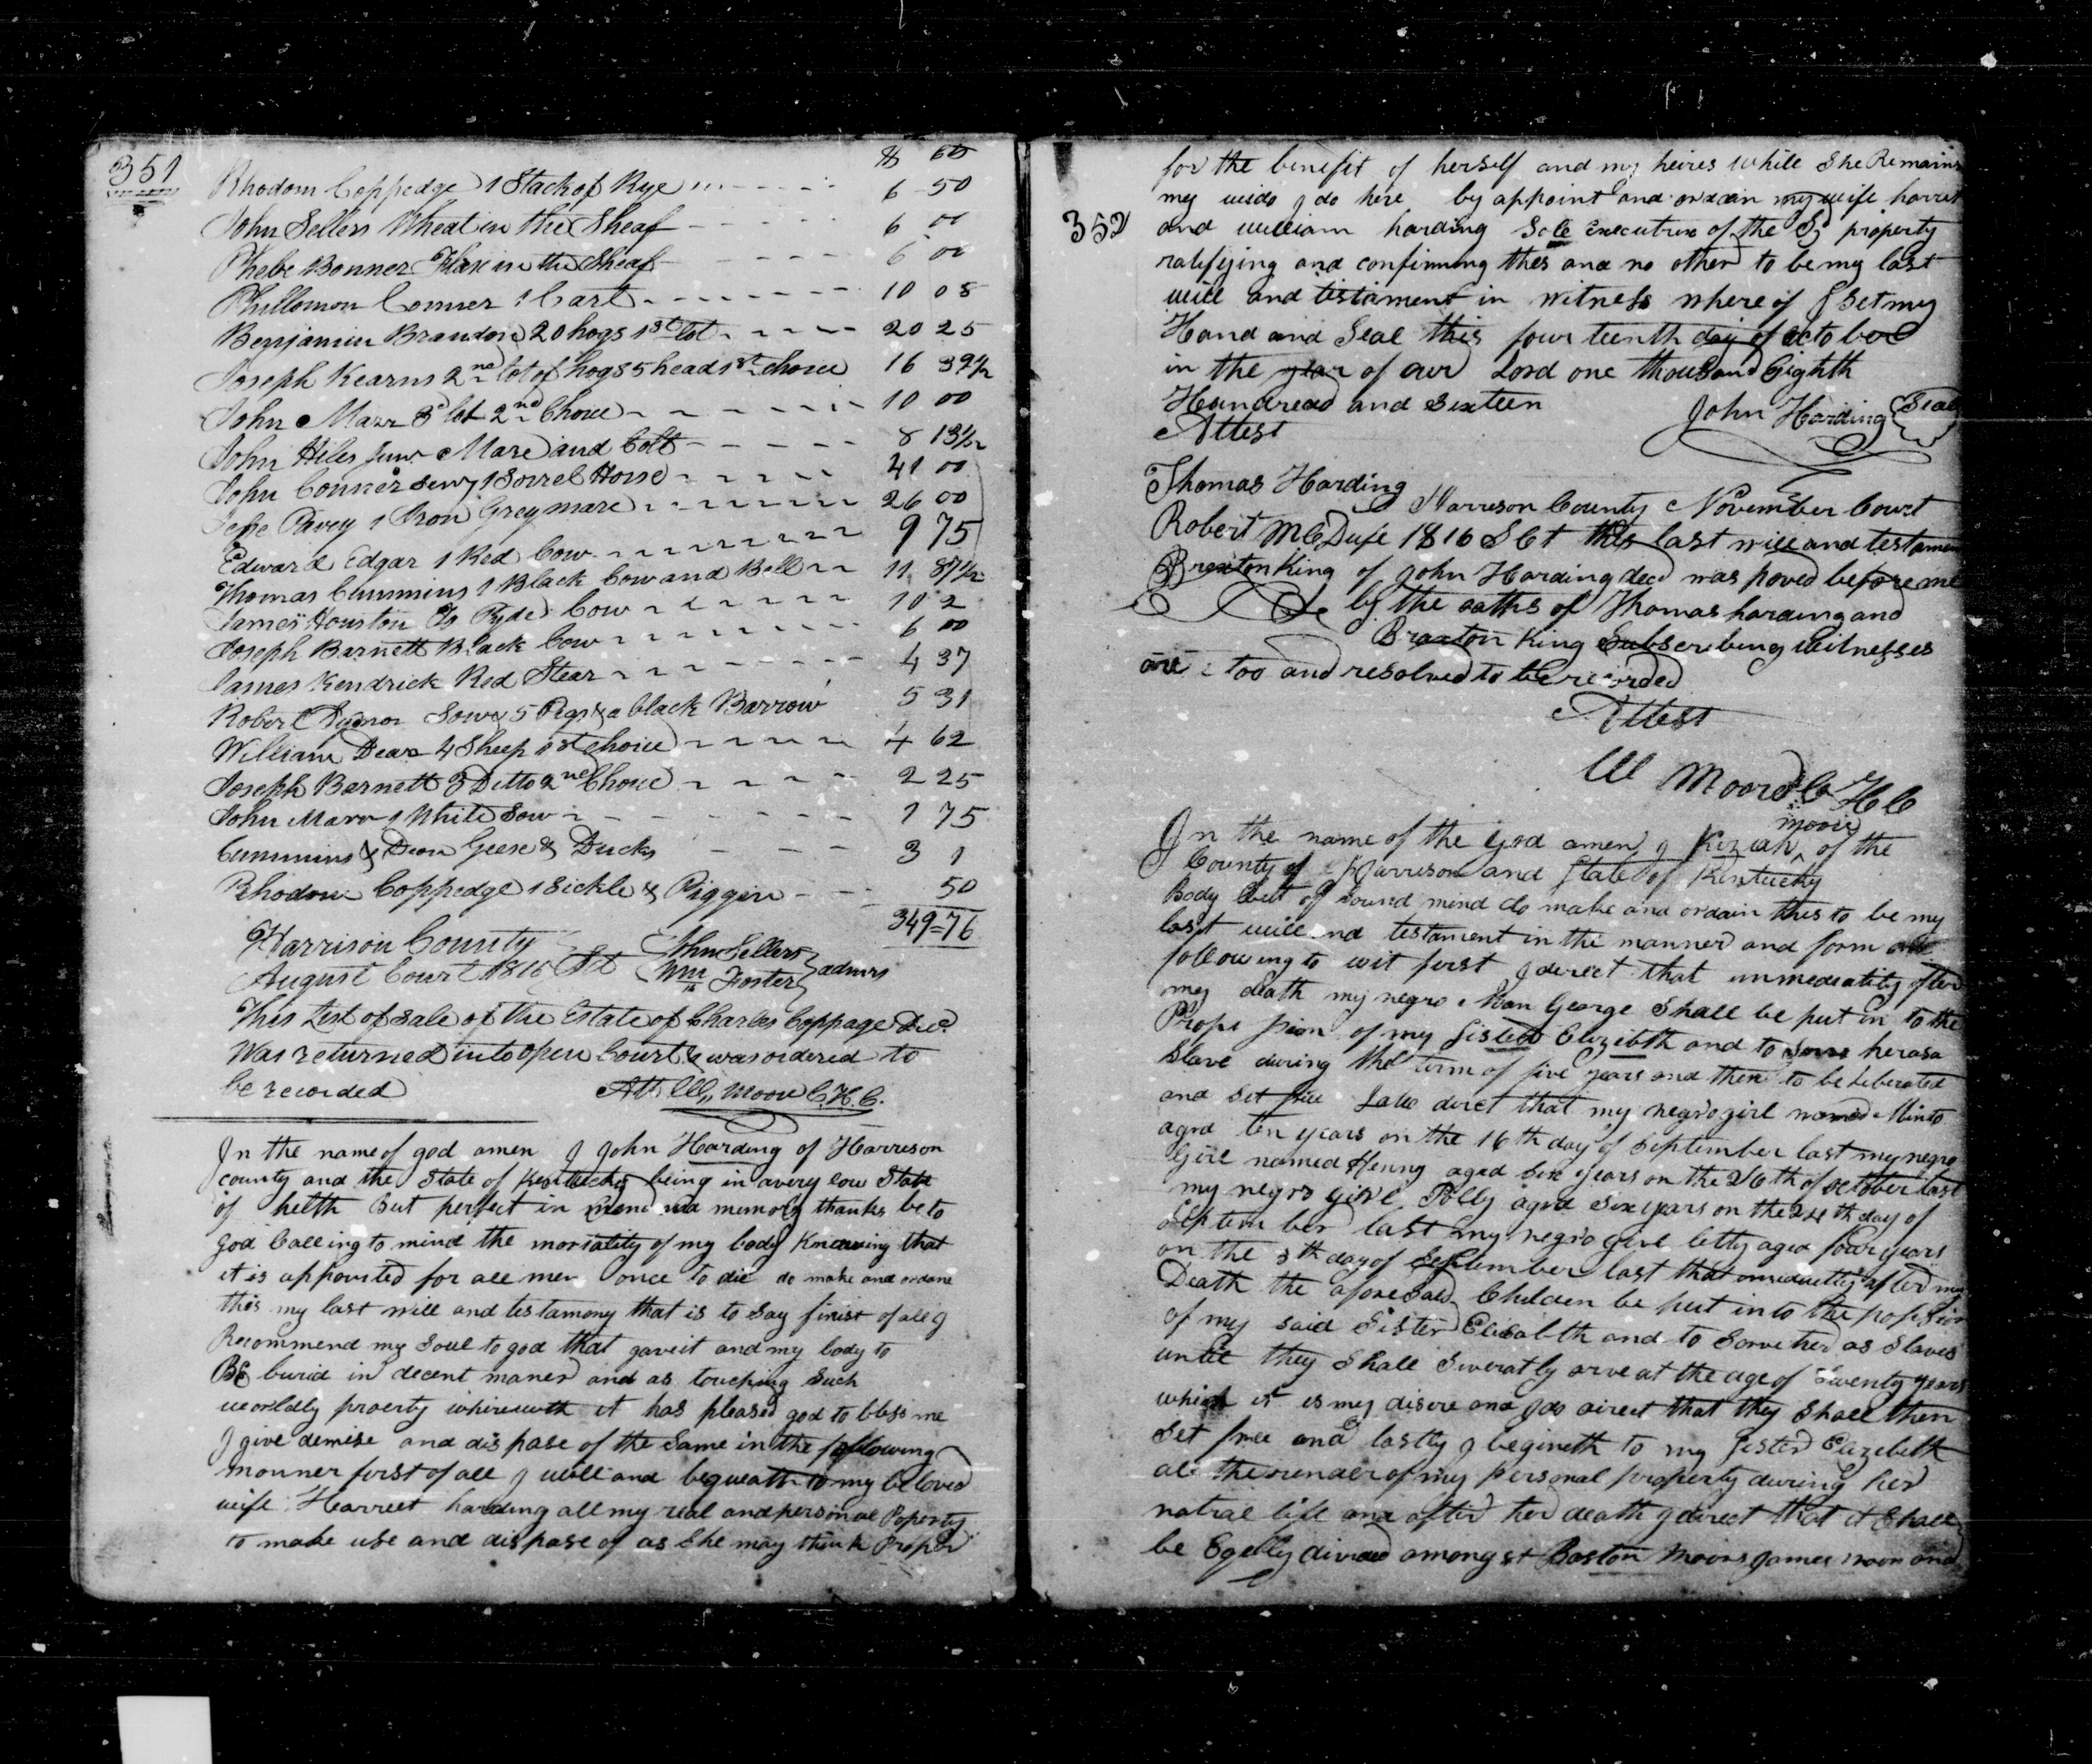 351
$ cts
Rhodom Coppedge 1 Stack of Rye 6 50
John Sellers Wheat in the Sheaf 6 00
Phebe Bonner Flax in the Sheaf 6 00
Phillomon Conner 1 Cart 10 08
Benjamin Brandon 20 hogs 1st lot 20 25
Joseph Kearns 2nd lot of hogs 5 head 1st choice 16 39½
John Marr 3d lot 2nd Choice 10 00
John Hiles Junr Mare and Colt 8 13½
John Conner Senr 1 Sorrel Horse 41 00
Jesse Pavey 1 Iron Grey mare 26 00
Edward Edgar 1 Red Cow 9 75
Thomas Cummins 1 Black Cow and Bell 11 87½
James Houston To Pyde Cow 10 2
Joseph Barnett Black Cow 6 00
James Kendrick Red Stear 4 37
Robert Sow & 5 Pigs & a black Barrow 5 31
William Dear 4 Sheep 1st choice 4 62
Joseph Barnett 3 Ditto 2nd Choice 2 25
John Marr 1 White Sow 1 75
Cummins & Dear Geese & Ducks 3 1
Rhodom Coppedge 1 Sickle & Piggin 50
349=76
Harrison County
August Court 1816 Sct John Sellers
Wm Foster } admrs
This List of Sale of the Estate of Charles Coppage Decd
Was returned into open Court & was ordered to
be recorded Att W,, Moore C.H.C.
In the name of god amen I John Harding of Harreson
county and the State of Kentucky being in a very low State
of helth But perfect in mind and memory thanks be to
god Calling to mind the mortality of my body Knowing that
it is appointed for all men once to die do make and ordane
this my last will and testamony that is to Say first of all I
Recommend my Soul to god that gave it and my body to
BE burid in decent maner and as touching Such
worldly proerty whirewith it has pleased god to bless me
I give demise and dispase of the Same in the following
manner first of all I will and bequeath to my beloved
wife Harreet harding all my real and personal Poperty
to make use and dispase of as She may think Proper
for the benefit of herself and my heires while She Remains
my wido I do here by appoint and ordain my wife harret
352
and william harding Sole Executrix of the Sd property
ratifying and confirming thes and no other to be my last
will and testament in witness where of I Set my
Hand and Seal this four teenth day of octo ber
in the year of our Lord one thousand Eighth
Hundread and Sixteen John Harding Seal
Attest
Thomas Harding Harreson County November Court
Robert McDufe 1816 SCt this last will and testamen
Braxton King of John Harding decd was poved before me
by the oaths of Thomas harding and
Braxton King Subscribeing Witnesses
too and resolved to be recorded
Attest
W Moore C H C
moore
In the name of the god amen I Keziah ^ of the
County of Harrison and State of Kentucky
Body but of sound mind do make and ordain this to be my
last will and testament in the manner and form
following to wit first I direct that immediatily after
my death my negro Man George Shall be put in to the
Prope ssion of my Sister Elizebth and to her as a
slave during the term of five years and then to be Liberated
and Set free I also direct that my negro girl named Minto
aged ten years on the 16th day of September last my negro
girl named Henny aged Six years on the 26th of october last
my negro girl Polly aged Six years on the 24th day of
September last my negro girl letty aged four years
on the 5th day of September last that immediatly after my
Death the aforesaid Children be put into the possession
of my said Sister Elisabeth and to Serve her as Slaves
until they Shall Severatly arve at the age of Twenty years
which it is my disire and I do direct that they Shall then
Set free and lastly I begineth to my Sister Elizebeth
all the render of my personal property during her
natral life and after her death I direct that it Shall
be Egelly divided amongst Boston Moore James moore and